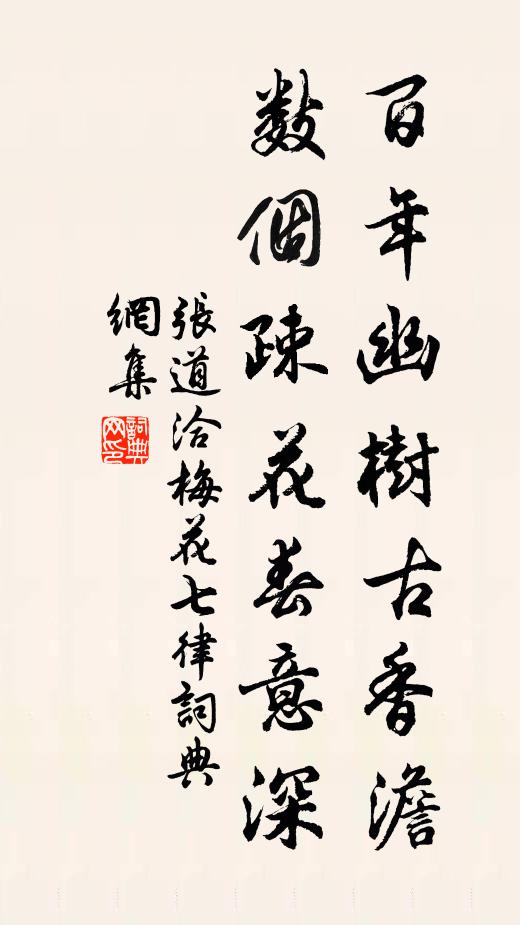 百年幽樹古香澹
數個疎花春意深
張道洽梅花七律詞典
網集
詞典網印